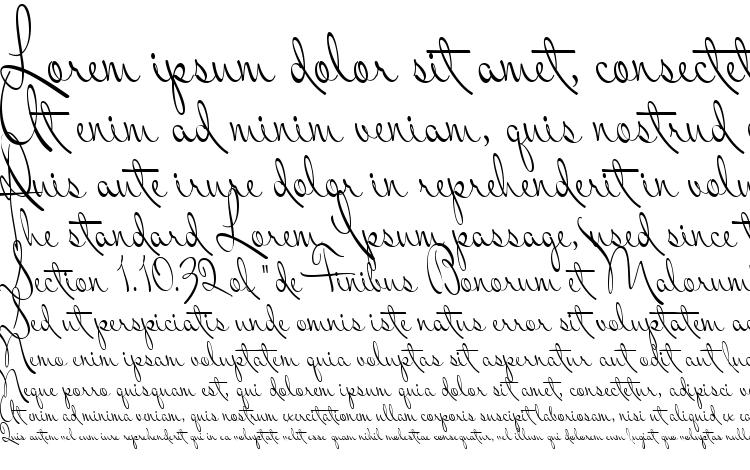 Lorem ipsum dolor sit amet, consectet
Ut enim ad minim veniam, quis nostrud
Duis aute irure dolor in reprehenderit in volu
The standard Lorem Ipsum passage, used since t
Section 1.10.32 of "de Finibus Bonorum et Malorum
Sed ut perspiciatis unde omnis iste natus error sit voluptatem ac
Nemo enim ipsam voluptatem quia voluptas sit aspernatur aut odit aut fug
Neque porro quisquam est, qui dolorem ipsum quia dolor sit amet, consectetur, adipisci v
Ut enim ad minima veniam, quis nostrum exercitationem ullam corporis suscipit laboriosam, nisi ut aliquid ex ea
Quis autem vel eum iure reprehenderit qui in ea voluptate velit esse quam nihil molestiae consequatur, vel illum qui dolorem eum fugiat quo voluptas nulla